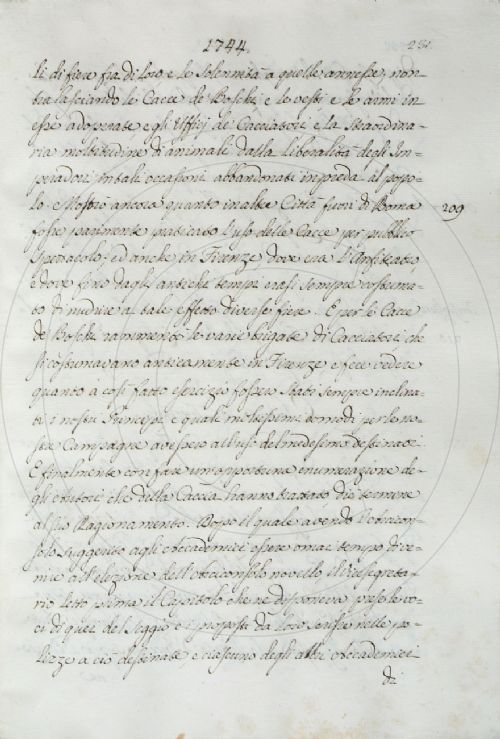 1744. 231.
li di fiere fra di loro e le solennità a quelle annesse, non
tralasciando le Cacce de Boschi e le vesti e le armi in
esse adoperate e gli Uffizj dei Cacciatori e la straordina-
ria moltitudine di animali dalla liberalità degli Im-
peradori in tali occasioni abbandonati in preda al popo-
lo. e Mostrò ancora quanto in altre Città fuori di Roma 209
fosse parimente praticato l'uso delle Cacce per pubblico
spettacolo; ed anche in Firenze dove era l'Anfiteatro,
e dove fino dagli antichi tempi erasi sempre costuma-
to di nudrire a tal effetto diverse fiere. E per le Cacce
de Boschi rammentò le varie brigate di Cacciatori che
si costumavano anticamente in Firenze e fece vedere
quanto a così fatto esercizio fossero stati sempre inclina-
ti i nostri Principi e quali moltissimi comodi per le no-
stre Campagne avessero all'uso del medesimo destinati.
E finalmente con fare un'opportuna enumerazione de-
gli Autori che della Caccia hanno trattato diè termine
al suo Ragionamento. Dopo il quale avendo l'Arcicon-
solo suggerito agli Accademici essere omai tempo di ve-
nire all'elezione dell'Arciconsolo novello il Vicesegreta-
rio letto prima il Capitolo che ne disponeva prese le vo-
ci di quei del seggio e i proposti da loro scrisse nelle po-
lizze a ciò destinate e ciascuno degli altri Accademici
di